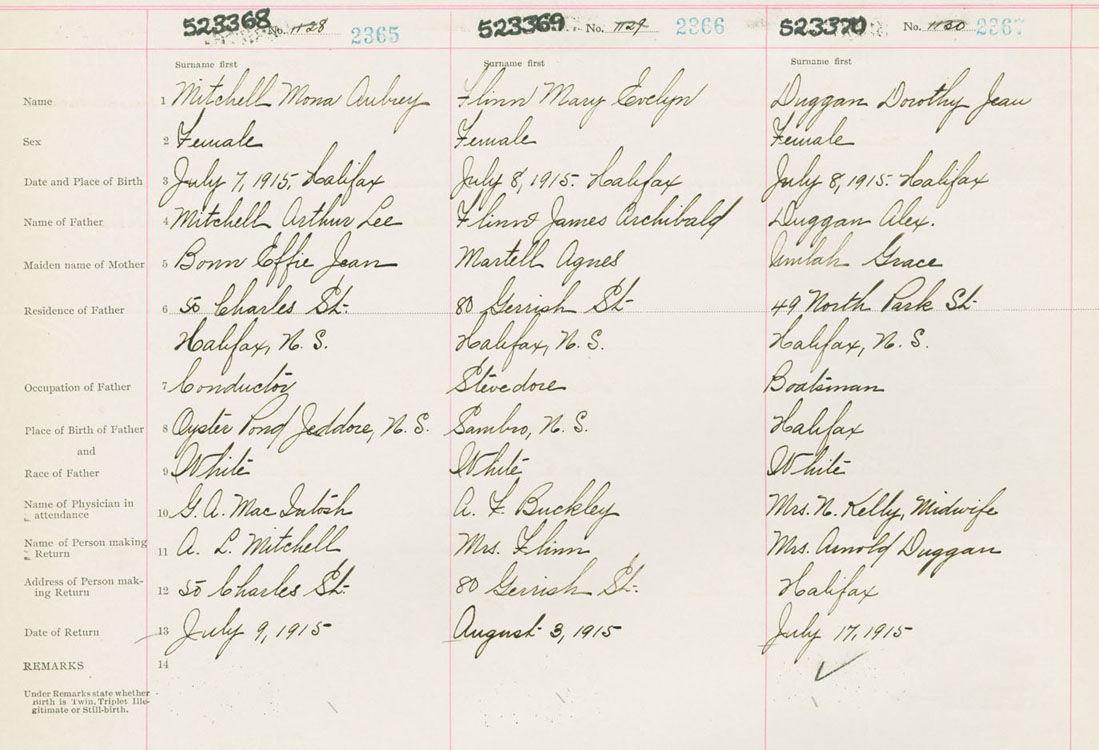 523368 No. 1128 2365 523369 No. 1129 2366 523370 No. 1130 2367
Surname first Surname first Surname first
Name 1 Mitchell Mona Aubrey Flinn Mary Evelyn Duggan Dorothy Jean
Sex 2 Female Female Female
Date and Place of Birth 3 July 7, 1915, Halifax July 8, 1915. Halifax July 8, 1915. Halifax
Name of Father 4 Mitchell Arthur Lee Flinn James Archibald Duggan Alex.
Maiden name of Mother 5 Bonn Effie Jean Martell Agnes Grace
Residence of Father 6 50 Charles St. 80 Gerrish St. 49 North Park St
Halifax, N. S. Halifax, N. S. Halifax, N. S.
Occupation of Father 7 Conductor Stevedore Boatsman
Place of Birth of Father 8 Oyster Pond Jeddore, N. S. Sambro, N. S. Halifax
and
Race of Father 9 White White White
Name of Physician in
attendance 10 G. A. Mac Intosh A. F. Buckley Mrs. N. Kelly, Midwife
Name of Person making
Return 11 A. L. Mitchell Mrs. Flinn Mrs. Arnold Duggan
Address of Person mak-
ing Return 12 50 Charles St. 80 Gerrish St. Halifax
Date of Return 13 July 9, 1915 August 3, 1915 July 17, 1915
REMARKS 14
Under Remarks state whether
Birth is Twin, Triplet Ille-
gitimate or Still-birth.